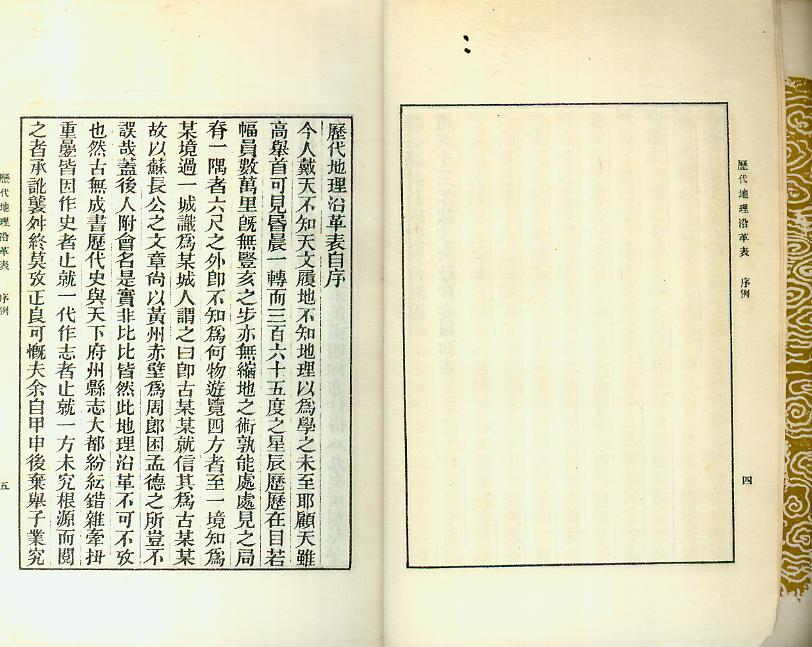 歷代地理沿革表 序例
四
歷代地理沿革表自序
今人戴天不知天文履地不知地理以爲學之未至耶顧天雖
高舉首可見昏晨一轉而三百六十五度之星辰歷歷在目若
幅員數萬里旣無豎亥之步亦無縮地之術孰能處處見之局
脊一隅者六尺之外卽不知爲何物遊覽四方者至一境知爲
某境過一城識爲某城人謂之曰卽古某某就信其爲古某某
故以蘇長公之文章尙以黃州赤壁爲周郎困孟德之所豈不
誤哉蓋後人附會名是實非比比皆然此地理沿革不可不攷
也然古無成書歷代史與天下府州縣志大都紛紜錯雜牽拚
重曡皆因作史者止就一代作志者止就一方未究根源而閱
之者承訛襲舛終莫攷正良可慨夫余自甲申後棄舉子業究
歷代地理沿革表 序例
五